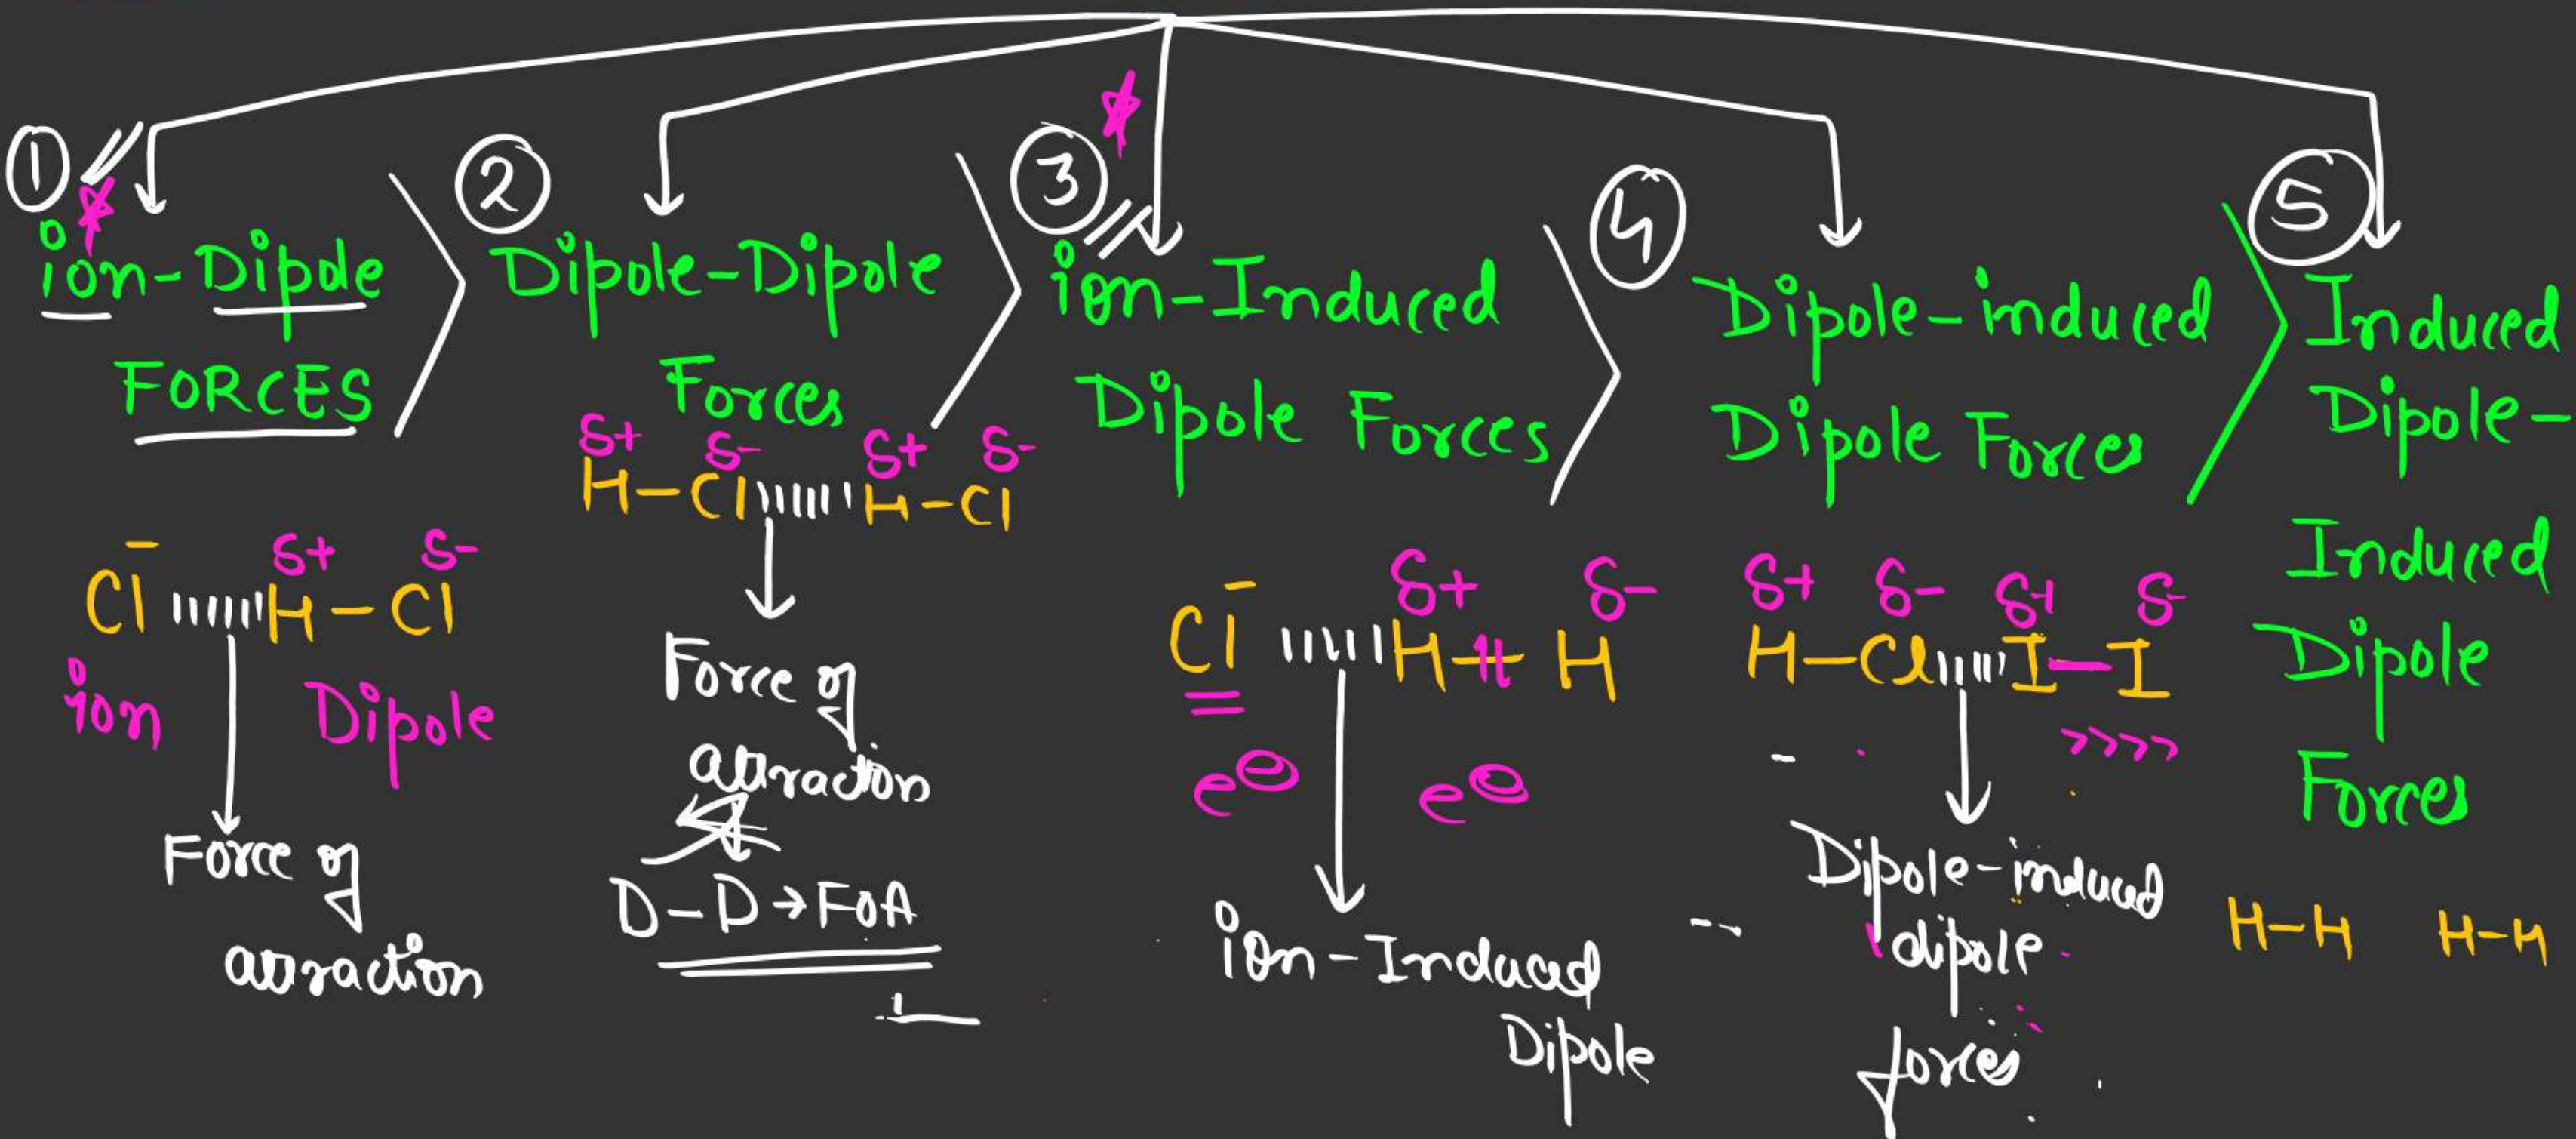 ①
ion-Dipole
FORCES
Cl⁻ ıııııı H – Cl
δ+ δ-
ion Dipole
Force of
attraction
>
②
Dipole-Dipole
Forces
δ+ δ- δ+ δ-
H–Cl ıııııı H–Cl
Force of
attraction
D–D→FOA
>
③
ion-Induced
Dipole Forces
δ+ δ-
Cl⁻ ıııııı H–H
e⊖ e⊖
ion-Induced
Dipole
>
④
Dipole-induced
Dipole Forces
δ+ δ- δ+ δ-
H–Cl ıııııı I–I
>>>>
Dipole-induced
dipole
forces
>
⑤
Induced
Dipole-
Induced
Dipole
Forces
H–H H–H